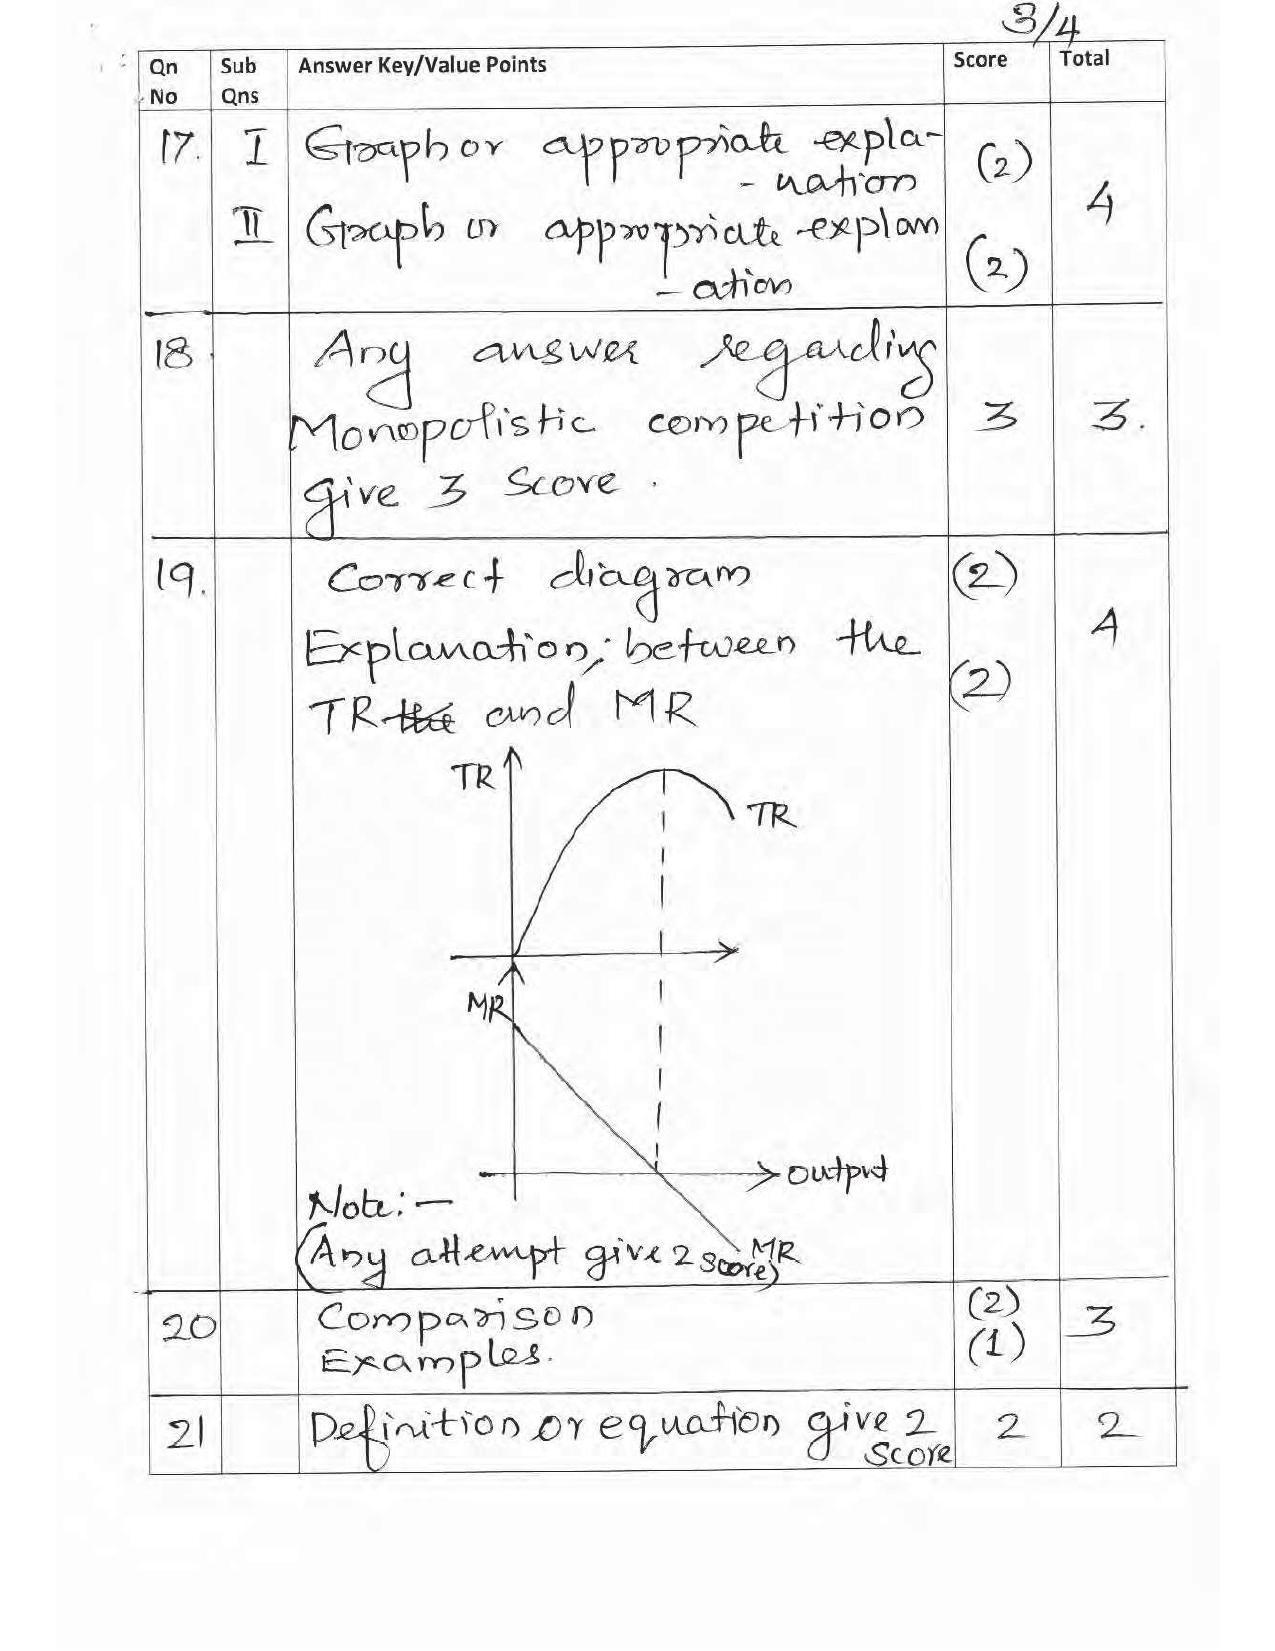 3/4
Qn No Sub Qns Answer Key/Value Points Score Total
17. I Graph or appropriate expla-
- nation (2)
4
II Graph or appropriate explan
- ation (2)
18 Any answer regarding
Monopolistic competition 3 3.
give 3 Score.
19. Correct diagram (2)
Explanation; between the 4
TR and MR (2)
TR
TR
MR
output
Note:-
(Any attempt give 2 score)
MR
20 Comparison (2) 3
Examples. (1)
21 Definition or equation give 2 2 2
Score